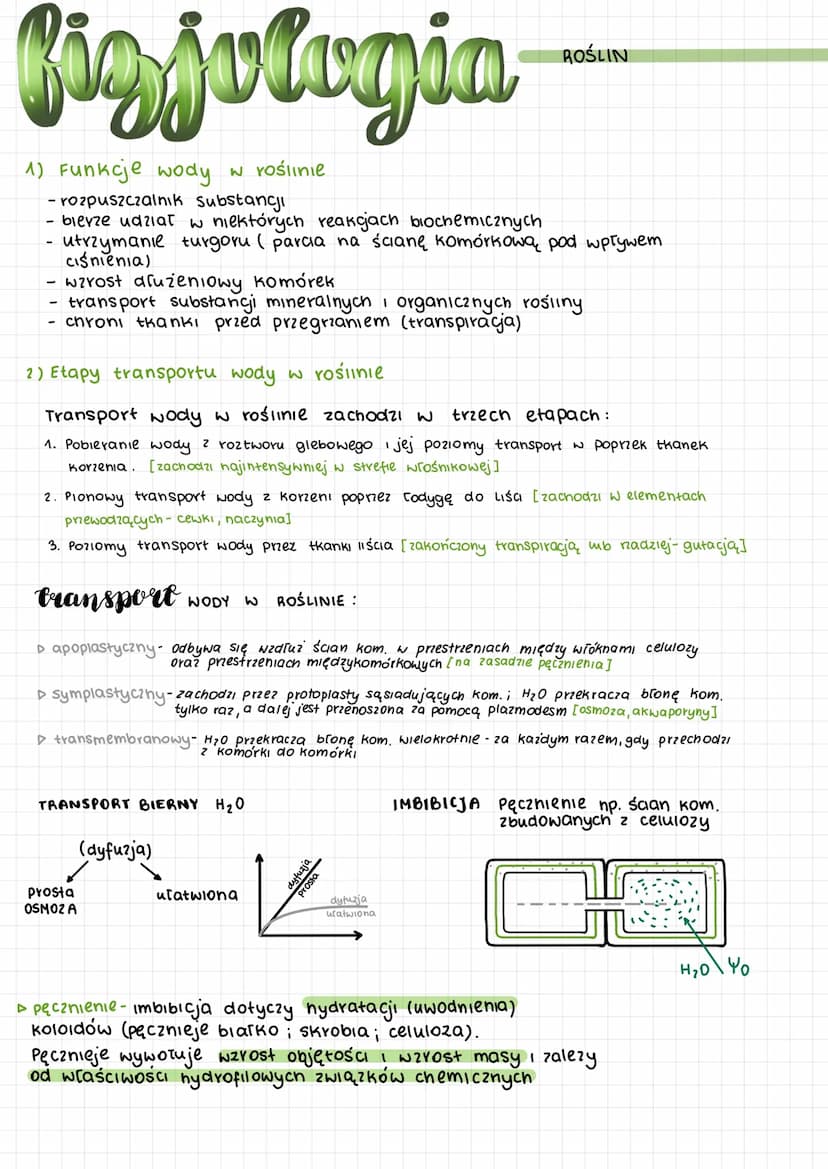 fizjologia
ROŚLIN
1) Funkcje wody w roślinie
- rozpuszczalnik substancji
- bierze udział w niektórych reakcjach biochemicznych
- utrzymanie turgoru (parcia na ścianę komórkową pod wpływem
ciśnienia)
- wzrost dłużeniowy komórek
- transport substancji mineralnych i organicznych rośliny
- chroni tkanki przed przegrzaniem (transpiracja)
2) Etapy transportu wody w roślinie
Transport wody w roślinie zachodzi w trzech etapach:
1. Pobieranie wody z roztworu glebowego i jej poziomy transport w poprzek tkanek
korzenia. [zachodzi najintensywniej w strefie włośnikowej]
2. Pionowy transport wody z korzeni poprzez łodygę do liści [zachodzi w elementach
przewodzących - cewki, naczynia]
3. Poziomy transport wody przez tkanki liścia [zakończony transpiracją lub rzadziej - gutacją]
transport WODY W ROŚLINIE:
▷ apoplastyczny - odbywa się wzdłuż ścian kom. w przestrzeniach między włóknami celulozy
oraz przestrzeniach międzykomórkowych [na zasadzie pęcznienia]
▷ symplastyczny - zachodzi przez protoplasty sąsiadujących kom.; H₂O przekracza błonę kom.
tylko raz, a dalej jest przenoszona za pomocą plazmodesm [osmoza, akwaporyny]
▷ transmembranowy - H₂O przekracza błonę kom. wielokrotnie - za każdym razem, gdy przechodzi
z komórki do komórki
TRANSPORT BIERNY H₂O
(dyfuzja)
prosta
OSMOZA
ułatwiona
dyfuzja
prosta
dyfuzja
ułatwiona
IMBIBICJA Pęcznienie np. ścian kom.
zbudowanych z celulozy
H₂O Ψ0
▷ pęcznienie - imbibicja dotyczy hydratacji (uwodnienia)
koloidów (pęcznieje białko; skrobia; celuloza).
Pęcznieje wywołuje wzrost objętości i wzrost masy i zależy
od właściwości hydrofilowych związków chemicznych